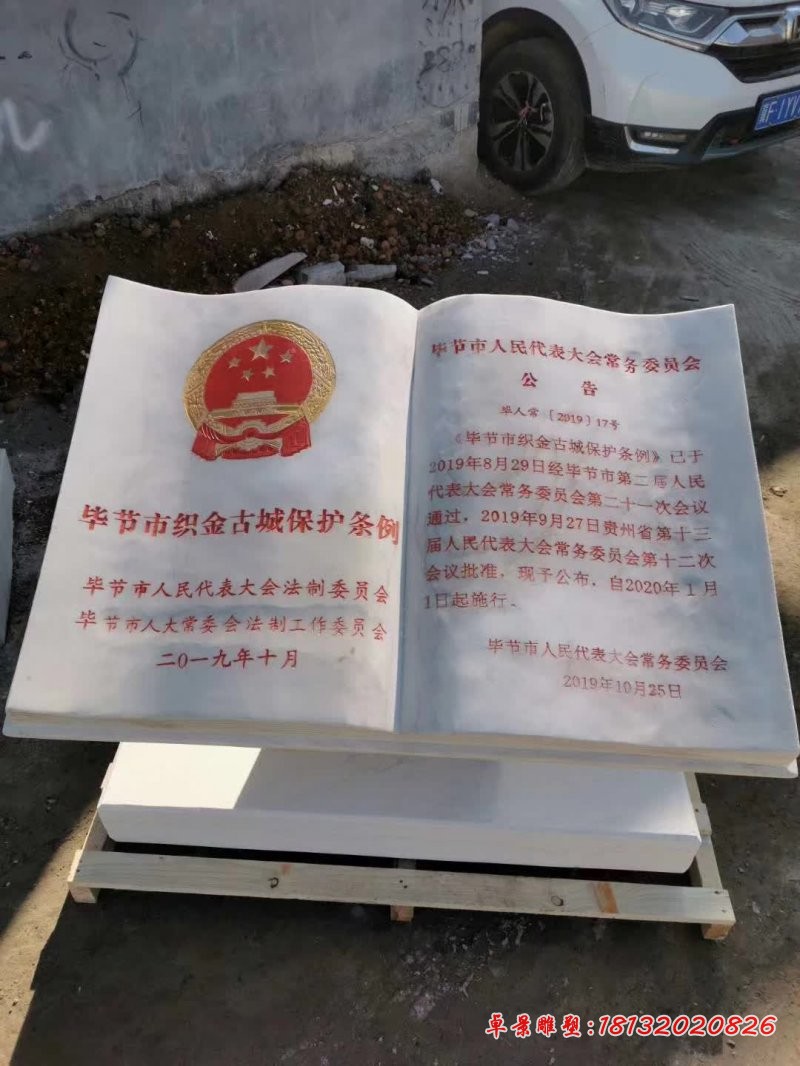 毕节市织金古城保护条例
毕节市人民代表大会法制委员会
毕节市人大常委会法制工作委员会
二〇一九年十月
毕节市人民代表大会常务委员会
公 告
毕人常〔2019〕17号
《毕节市织金古城保护条例》已于
2019年8月29日经毕节市第二届人民
代表大会常务委员会第二十一次会议
通过，2019年9月27日贵州省第十三
届人民代表大会常务委员会第十二次
会议批准，现予公布，自2020年1月
1日起施行。
毕节市人民代表大会常务委员会
2019年10月25日
卓景雕塑:18132020826